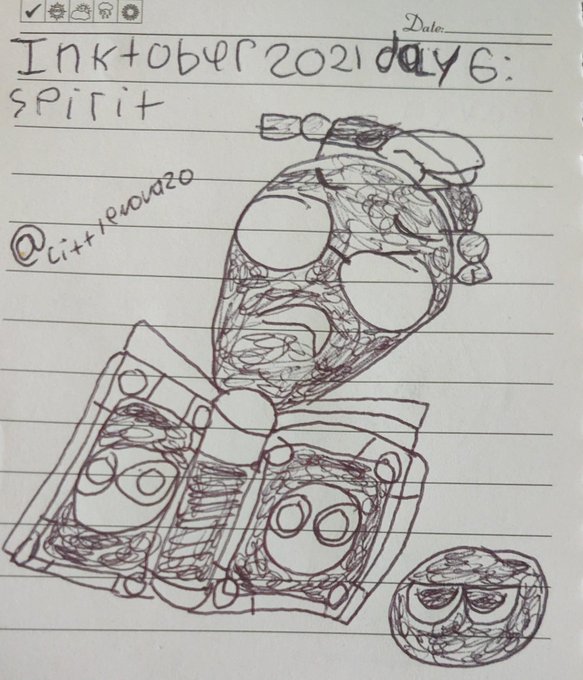 Date:
Inktober 2021 day 6:
spirit
@cittrenova20